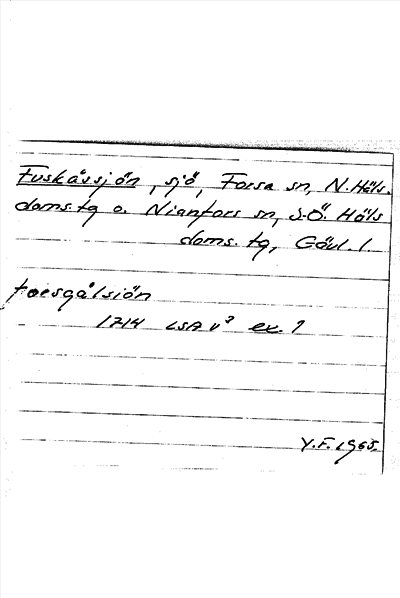 Fuskåssjön, sjö, Forsa sn, N.Häls.
doms.tg o. Nianfors sn, S.Ö. Häls
doms. tg, Gävl. l.
foesgålsiön
1714 LSA v³ ex. 1
Y.F. 1965.